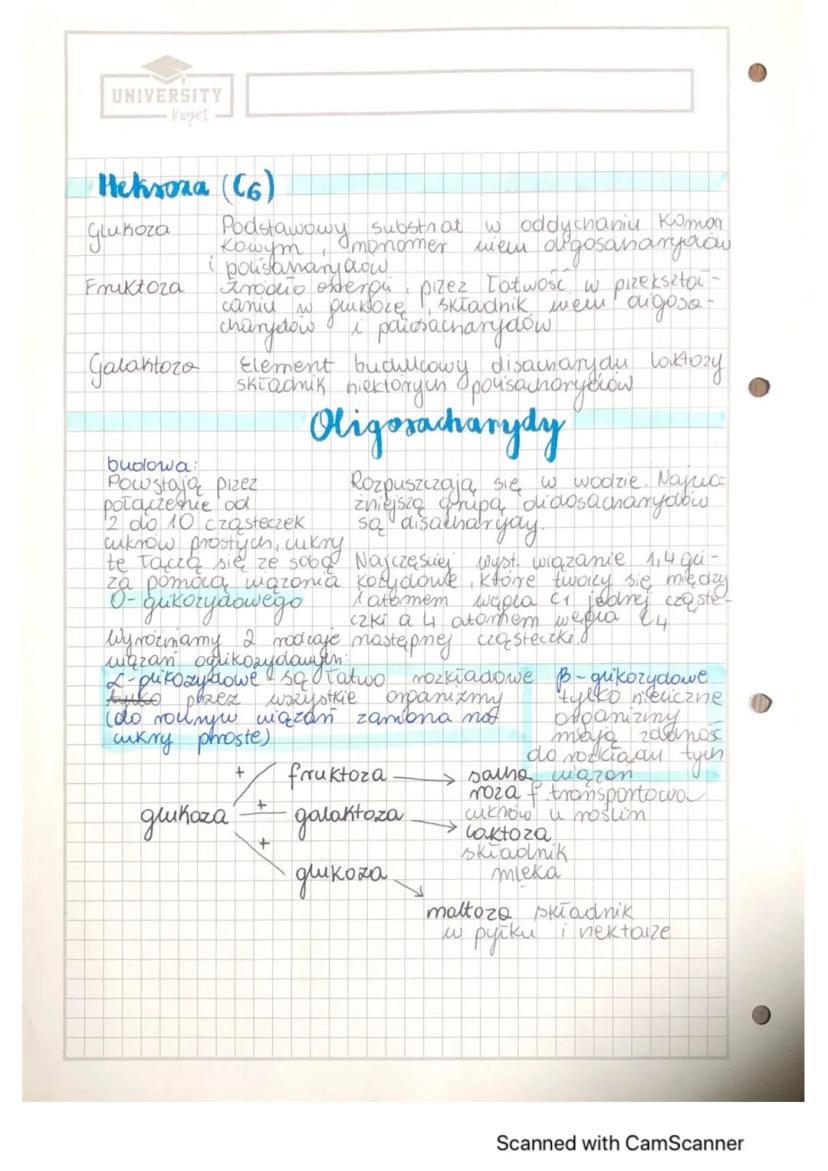 UNIVERSITY
Kayet
Heksoza (C6)
Glukoza Podstawowy substrat w oddychaniu komór
kowym, monomer wielu oligosacharydów
i polisacharydów
Fruktoza źródło energii, przez łatwość w przekształ-
caniu w glukozę, składnik wielu oligosa-
charydów i polisacharydów
Galaktoza Element budulcowy disacharydu laktozy
składnik niektórych polisacharydów
Oligosacharydy
budowa:
Powstają przez
połączenie od
2 do 10 cząsteczek
cukrów prostych, cukry
te łączą się ze sobą
za pomocą wiązania
O-glikozydowego
Rozpuszczają się w wodzie. Najwa-
żniejszą grupą
są disacharydy.
Najczęściej wyst. wiązanie 1,4 gli-
kozydowe, które tworzy się między
1 atomem węgla C1 jednej cząste-
czki a 4 atomem węgla C4
następnej cząsteczki.
Wyróżniamy 2 rodzaje
wiązań
α-glikozydowe są łatwo rozkładowe
tylko przez wszystkie organizmy
(do wiązań zamiana na
cukry proste)
β-glikozydowe
tylko nieliczne
organizmy
mają zdolność
do rozkładu tych
wiązań
glukoza
+ fruktoza → sacha
roza f. transportowa
cukrów u roślin
+ galaktoza → laktoza
składnik
mleka
+ glukoza → maltoza składnik
w pyłku i nektarze
Scanned with CamScanner